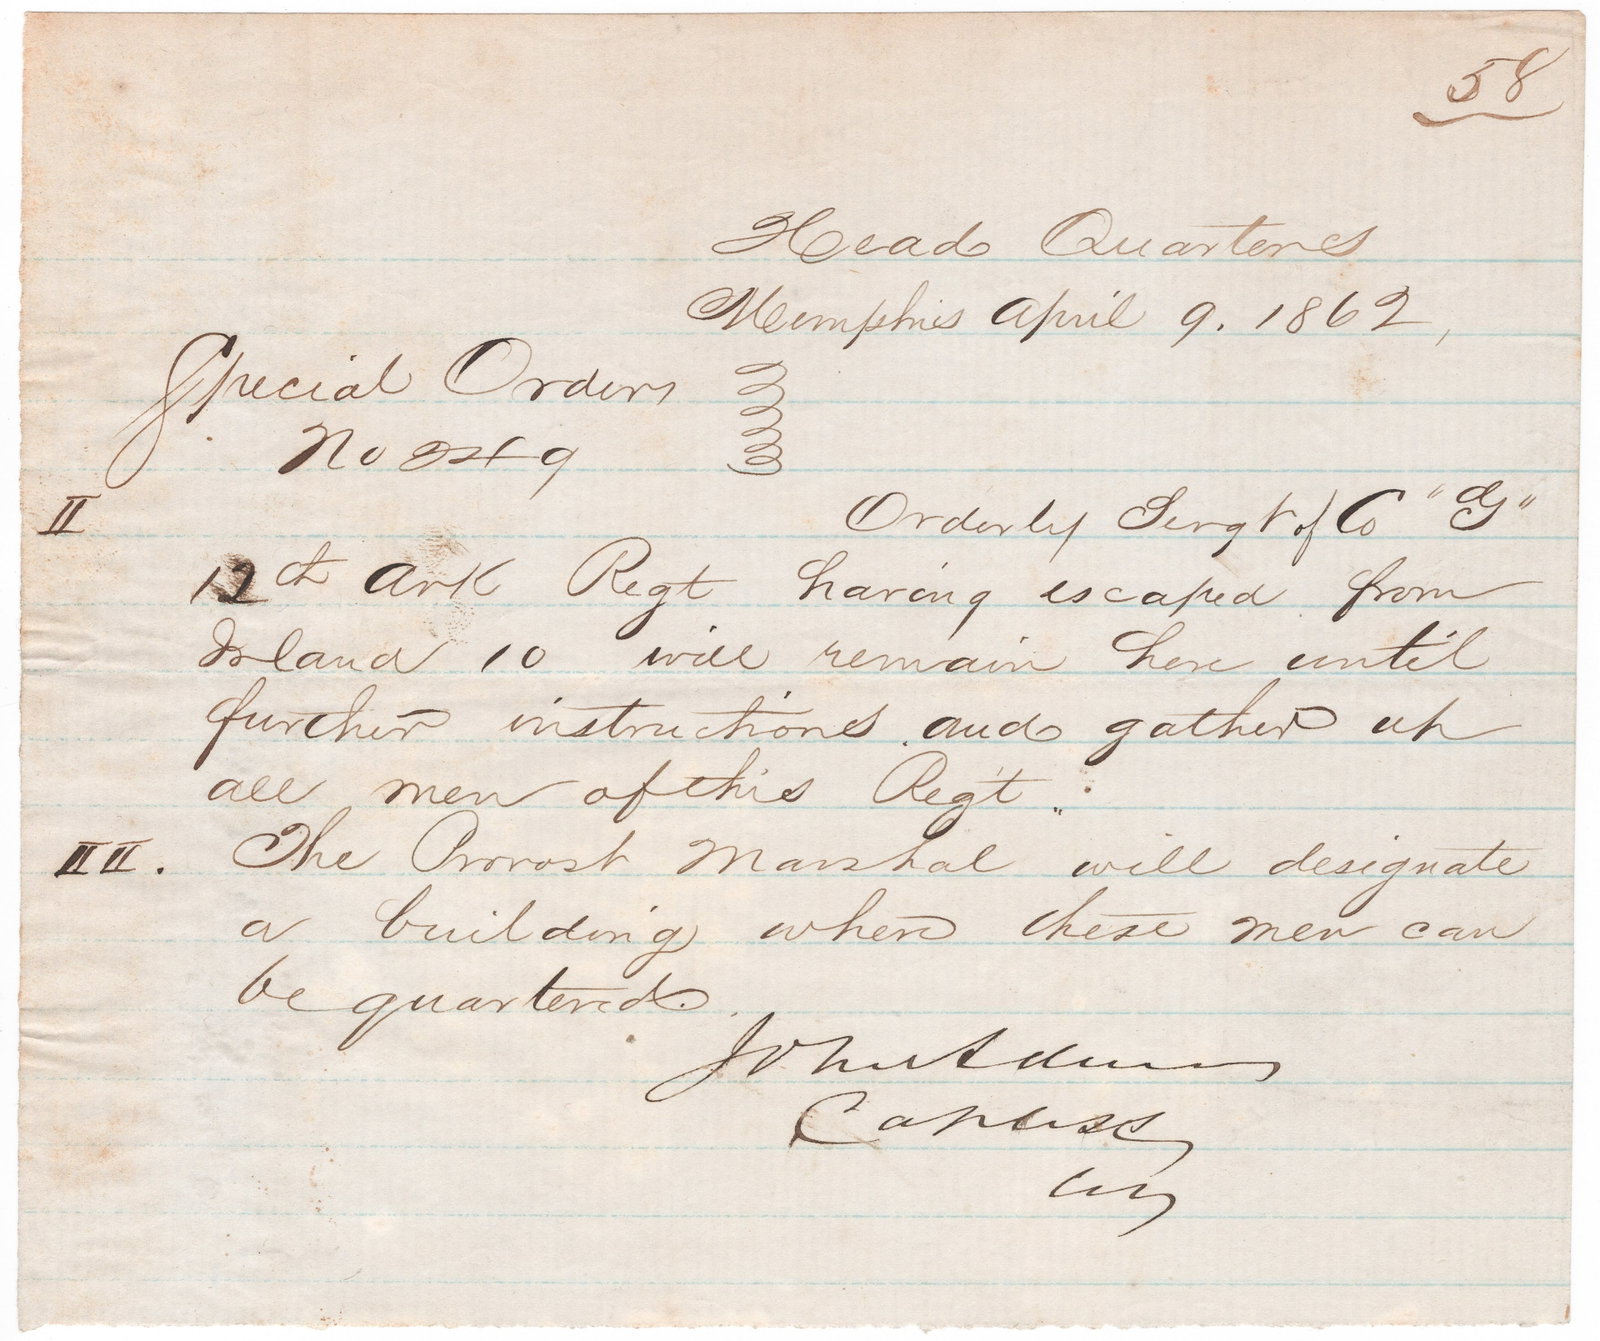 58
Head Quarters
Memphis April 9. 1862,
Special Orders
No 249
II Orderly Sergt of Co "G"
12th Ark Regt having escaped from
Island 10 will remain here until
further instructions and gather up
all men of this Regt.
III. The Provost Marshal will designate
a building where these men can
be quartered.
John Adams
Capt